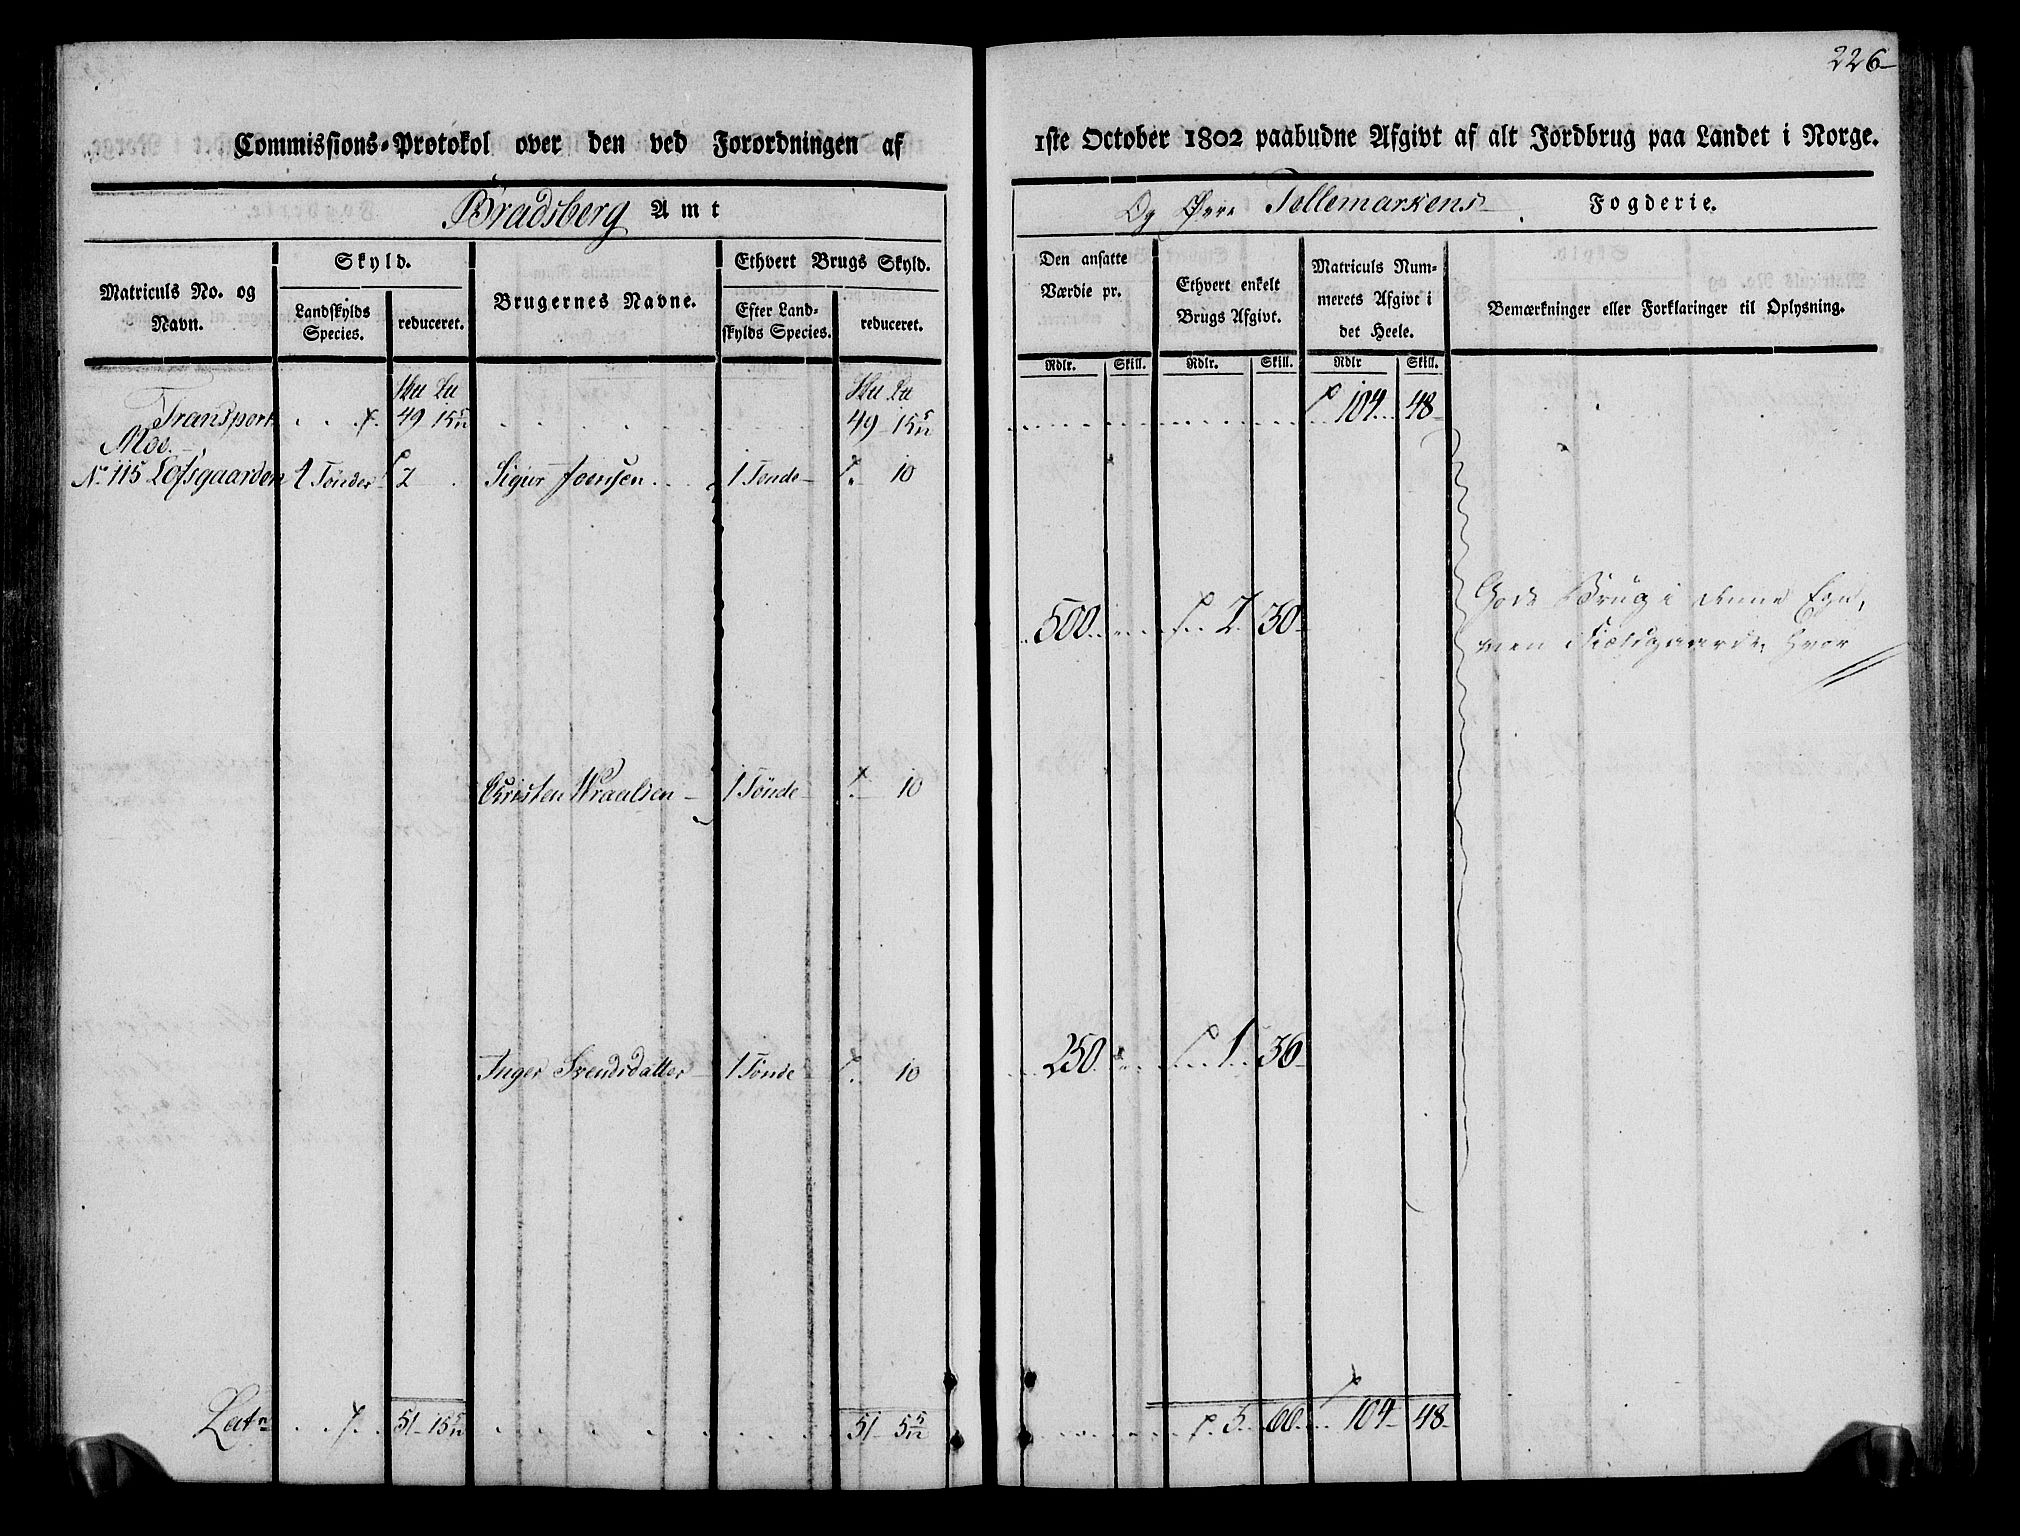 226
Commissions-Protokol over den ved Forordningen af
1ste October 1802 paabudne Afgivt af alt Jordbrug paa Landet i Norge.
Bradsberg Amt
Og Øvre Tellemarkens Fogderie.
Matriculs No. og Navn.
Skyld.
Landskylds Species.
reduceret.
Brugernes Navne.
Ethvert Brugs Skyld.
Efter Landskylds Species.
reduceret.
Den ansatte Værdie pr.
Ethvert enkelt Brugs Afgivt.
Matriculs Nummerets Afgivt i det Heele.
Bemærkninger eller Forklaringer til Oplysning.
Rdlr. Skill. Rdlr. Skill. Rdlr Skill.
Transport 49 15 5/12 49 15 5/12 104 48
Moe
No 115 Lofsgaarden 4 Tønder 2 Sigur Joensen 1 Tønde 10
500 2 30
Gode Brug i denne Egn,
men Fieldgaarde, hvor
Christen Wraalsen 1 Tønde 10
Inger Svendsdatter 1 Tønde 10
250 1 36
Lat 51 15 5/12 51 5 5/12 5 60 104 48